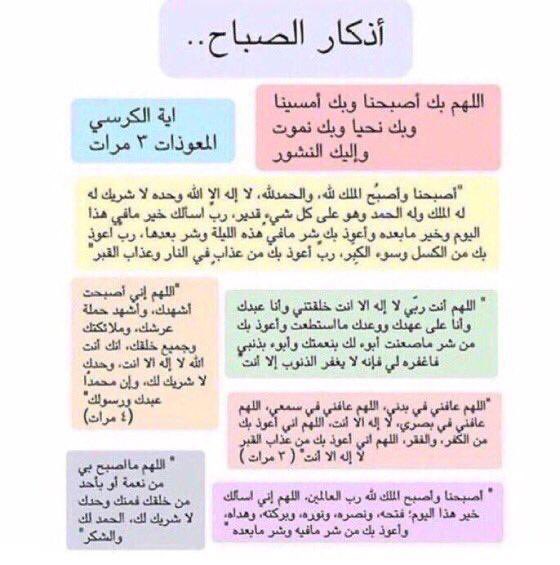 أذكار الصباح..
اللهم بك أصبحنا وبك أمسينا
وبك نحيا وبك نموت
وإليك النشور
اية الكرسي
المعوذات ٣ مرات
"أصبحنا وأصبُح الملك لله، والحمدلله، لا إله إلا الله وحده لا شريك له
له الملك وله الحمد وهو على كل شيءٍ قدير، ربِّ اسألك خير مافي هذا
اليوم وخير مابعده وأعوذ بك شر مافي هذه الليلة وشر بعدها، رب اعوذ
بك من الكسل وسوء الكِبر، ربِّ أعوذ بك من عذابٍ في النار وعذاب القبر"
" اللهم أنت ربّي لا إله الا انت خلقتني وأنا عبدك
وأنا على عهدك ووعدك مااستطعت وأعوذ بك
من شر ماصنعت أبوء لك بنعمتك وأبوء بذنبي
فاغفره لي فإنه لا يغفر الذنوب إلا أنت"
"اللهم إني أصبحت
أشهدك، وأشهد حملة
عرشك، وملائكتك
وجميع خلقك، انك أنت
الله لا إله الا انت، وحدك
لا شريك لك، وإن محمدًا
عبدك ورسولك"
(٤ مرات)
"اللهم عافني في بدني، اللهم عافني في سمعي، اللهم
عافني في بصري، لا إله الا أنت، اللهم اني أعوذ بك
من الكفر، والفقر، اللهم اني أعوذ بك من عذاب القبر
لا إله الا أنت" ( ٣ مرات )
" اللهم مااصبح بي
من نعمة أو بأحد
من خلقك فمنك وحدك
لا شريك لك، الحمد لك
والشكر"
" أصبحنا وأصبح الملك لله رب العالمين، اللهم إني اسألك
خير هذا اليوم؛ فتحه، ونصره، ونوره، وبركته، وهداه،
وأعوذ بك من شر مافيه وشر مابعده "